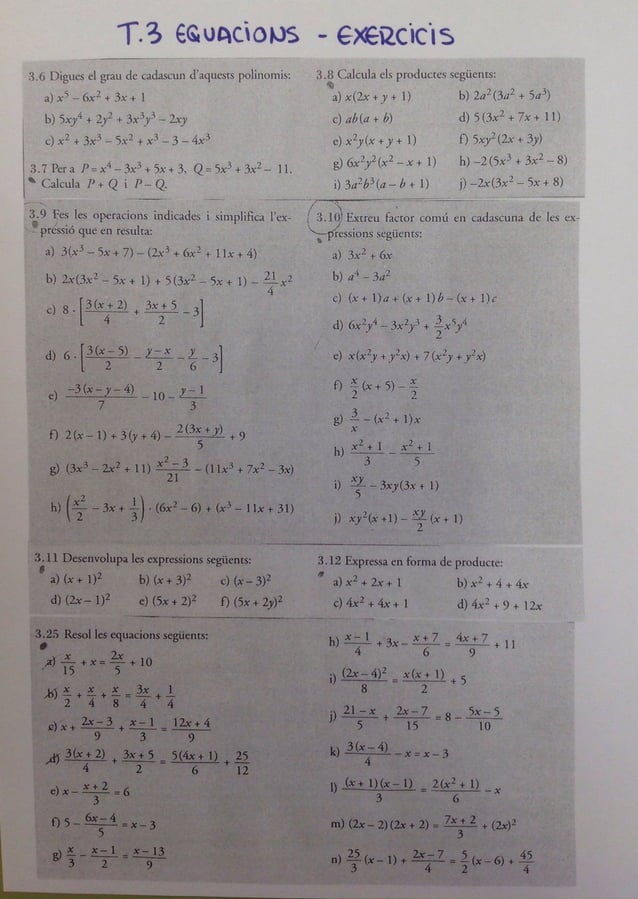 T.3 EQUACIONS - EXERCICIS
3.6 Digues el grau de cadascun d'aquests polinomis:
a) x⁵ – 6x² + 3x + 1
b) 5xy⁴ + 2y² + 3x³y³ – 2xy
c) x² + 3x³ – 5x² + x³ – 3 – 4x³
3.7 Per a P = x⁴ – 3x³ + 5x + 3, Q = 5x³ + 3x² – 11.
Calcula P + Q i P – Q.
3.8 Calcula els productes següents:
a) x(2x + y + 1) b) 2a²(3a² + 5a³)
c) ab(a + b) d) 5(3x² + 7x + 11)
e) x²y(x + y + 1) f) 5xy²(2x + 3y)
g) 6x²y²(x² – x + 1) h) –2(5x³ + 3x² – 8)
i) 3a²b³(a – b + 1) j) –2x(3x² – 5x + 8)
3.9 Fes les operacions indicades i simplifica l'ex-
pressió que en resulta:
a) 3(x³ – 5x + 7) – (2x³ + 6x² + 11x + 4)
b) 2x(3x² – 5x + 1) + 5(3x² – 5x + 1) – 21/4 x²
c) 8 · [3(x + 2)/4 + (3x + 5)/2 – 3]
d) 6 · [3(x – 5)/2 – (y – x)/2 – y/6 – 3]
e) –3(x – y – 4)/7 – 10 – (y – 1)/3
f) 2(x – 1) + 3(y + 4) – 2(3x + y)/5 + 9
g) (3x³ – 2x² + 11) (x² – 3)/21 – (11x³ + 7x² – 3x)
h) (x²/2 – 3x + 1/3) · (6x² – 6) + (x³ – 11x + 31)
3.10 Extreu factor comú en cadascuna de les ex-
pressions següents:
a) 3x² + 6x
b) a⁴ – 3a²
c) (x + 1)a + (x + 1)b – (x + 1)c
d) 6x²y⁴ – 3x²y³ + 3/2 x⁵y⁴
e) x(x²y + y²x) + 7(x²y + y²x)
f) x/2 (x + 5) – x/2
g) 3/x – (x² + 1)x
h) (x² + 1)/3 – (x² + 1)/5
i) xy/5 – 3xy(3x + 1)
j) xy²(x +1) – xy/2 (x + 1)
3.11 Desenvolupa les expressions següents:
a) (x + 1)² b) (x + 3)² c) (x – 3)²
d) (2x – 1)² e) (5x + 2)² f) (5x + 2y)²
3.12 Expressa en forma de producte:
a) x² + 2x + 1 b) x² + 4 + 4x
c) 4x² + 4x + 1 d) 4x² + 9 + 12x
3.25 Resol les equacions següents:
a) x/15 + x = 2x/5 + 10
b) x/2 + x/4 + x/8 = 3x/4 + 1/4
c) x + (2x – 3)/9 + (x – 1)/3 = (12x + 4)/9
d) 3(x + 2)/4 + (3x + 5)/2 = 5(4x + 1)/6 + 25/12
e) x – (x + 2)/3 = 6
f) 5 – (6x – 4)/5 = x – 3
g) x/3 – (x – 1)/2 = (x – 13)/9
h) (x – 1)/4 + 3x – (x + 7)/6 = (4x + 7)/9 + 11
i) (2x – 4)²/8 = x(x + 1)/2 + 5
j) (21 – x)/5 + (2x – 7)/15 = 8 – (5x – 5)/10
k) 3(x – 4)/4 – x = x – 3
l) (x + 1)(x – 1)/3 = 2(x² + 1)/6 – x
m) (2x – 2)(2x + 2) = (7x + 2)/3 + (2x)²
n) 25/3 (x – 1) + (2x – 7)/4 = 5/2 (x – 6) + 45/4